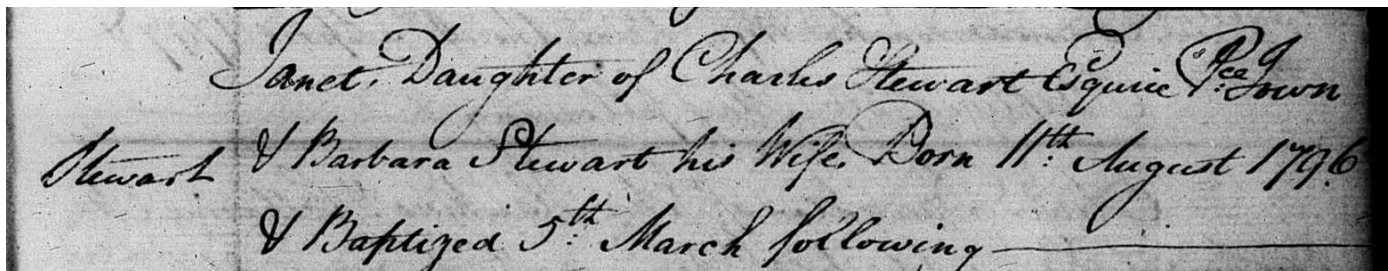 Janet, Daughter of Charles Stewart Esquire P:ce Town
Stewart & Barbara Stewart his Wife Born 11th: August 1796
& Baptized 5th: March following